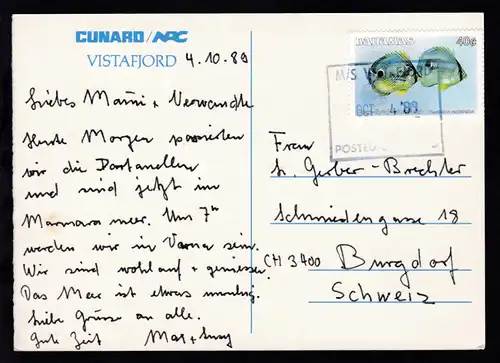 CUNARD/NAC
VISTAFJORD 4.10.89
Liebes Mami + Verwandte
Heute Morgen passierten
wir die Dardanellen
und sind jetzt im
Marmara meer. Um 7
werden wir in Varna sein.
Wir sind wohlauf + geniessen.
Das Meer ist etwas unruhig.
Liebe Grüsse an alle.
Gute Zeit
BAHAMAS 40c
M/S
OCT 4 '89
POSTED
Frau
Gerber-Brechter
Schmiedengasse 18
CH 3400 Burgdorf
Schweiz